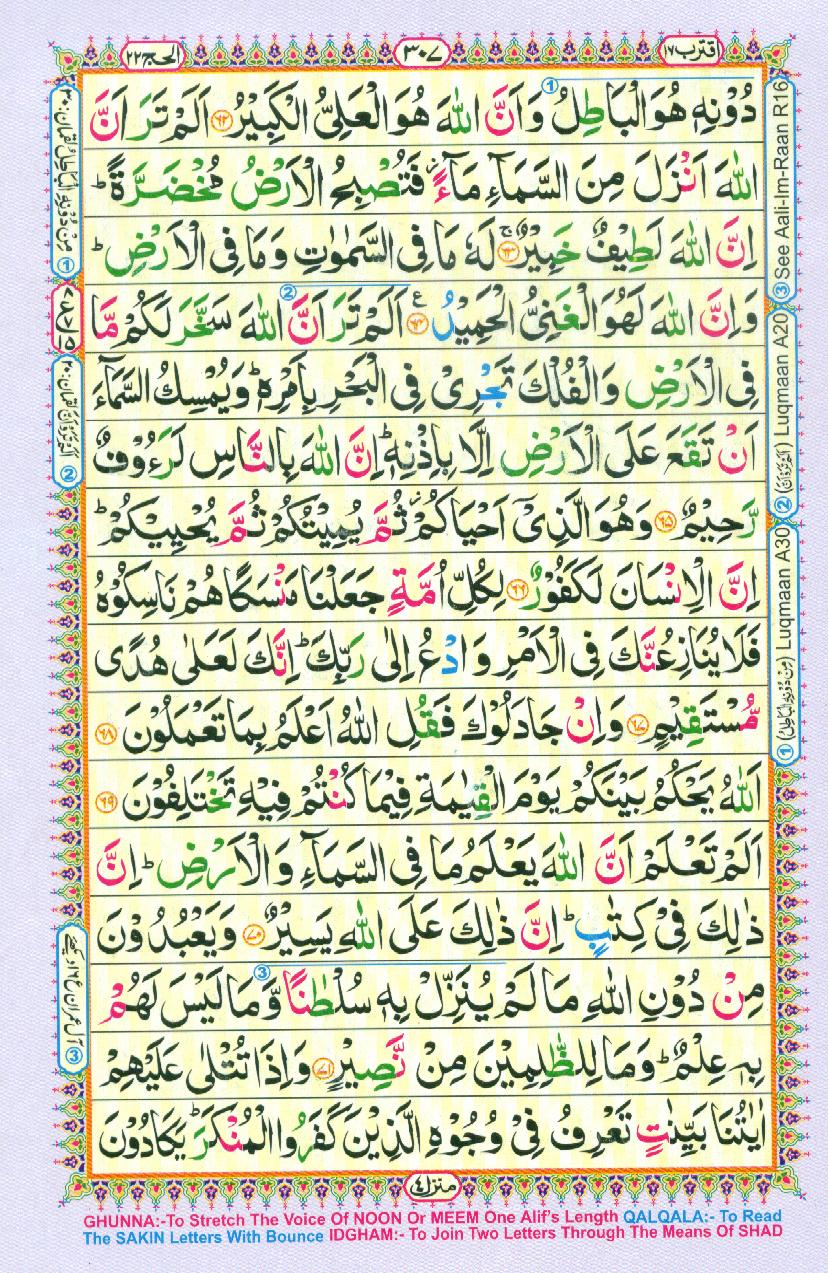 اقترب ١٧
٣٠٧
الحج ٢٢
دُوۡنِهٖ هُوَ الۡبَاطِلُ وَاَنَّ اللّٰهَ هُوَ الۡعَلِىُّ الۡكَبِيۡرُ ﴿۶۲﴾ اَلَمۡ تَرَ اَنَّ
اللّٰهَ اَنۡزَلَ مِنَ السَّمَآءِ مَآءً فَتُصۡبِحُ الۡاَرۡضُ مُخۡضَرَّةً ؕ
اِنَّ اللّٰهَ لَطِيۡفٌ خَبِيۡرٌ ۚ ﴿۶۳﴾ لَهٗ مَا فِى السَّمٰوٰتِ وَمَا فِى الۡاَرۡضِ ؕ
وَاِنَّ اللّٰهَ لَهُوَ الۡغَنِىُّ الۡحَمِيۡدُ ﴿۶۴﴾ اَلَمۡ تَرَ اَنَّ اللّٰهَ سَخَّرَ لَكُمۡ مَّا
فِى الۡاَرۡضِ وَالۡفُلۡكَ تَجۡرِىۡ فِى الۡبَحۡرِ بِاَمۡرِهٖ ؕ وَيُمۡسِكُ السَّمَآءَ
اَنۡ تَقَعَ عَلَى الۡاَرۡضِ اِلَّا بِاِذۡنِهٖ ؕ اِنَّ اللّٰهَ بِالنَّاسِ لَرَءُوۡفٌ
رَّحِيۡمٌ ﴿۶۵﴾ وَهُوَ الَّذِىۡۤ اَحۡيَاكُمۡ ثُمَّ يُمِيۡتُكُمۡ ثُمَّ يُحۡيِيۡكُمۡ ؕ
اِنَّ الۡاِنۡسَانَ لَـكَفُوۡرٌ ﴿۶۶﴾ لِكُلِّ اُمَّةٍ جَعَلۡنَا مَنۡسَكًا هُمۡ نَاسِكُوۡهُ
فَلَا يُنَازِعُنَّكَ فِى الۡاَمۡرِ وَادۡعُ اِلٰى رَبِّكَ ؕ اِنَّكَ لَعَلٰى هُدًى
مُّسۡتَقِيۡمٍ ﴿۶۷﴾ وَاِنۡ جَادَلُوۡكَ فَقُلِ اللّٰهُ اَعۡلَمُ بِمَا تَعۡمَلُوۡنَ ﴿۶۸﴾
اَللّٰهُ يَحۡكُمُ بَيۡنَكُمۡ يَوۡمَ الۡقِيٰمَةِ فِيۡمَا كُنۡتُمۡ فِيۡهِ تَخۡتَلِفُوۡنَ ﴿۶۹﴾
اَلَمۡ تَعۡلَمۡ اَنَّ اللّٰهَ يَعۡلَمُ مَا فِى السَّمَآءِ وَالۡاَرۡضِ ؕ اِنَّ
ذٰلِكَ فِىۡ كِتٰبٍ ؕ اِنَّ ذٰلِكَ عَلَى اللّٰهِ يَسِيۡرٌ ﴿۷۰﴾ وَيَعۡبُدُوۡنَ
مِنۡ دُوۡنِ اللّٰهِ مَا لَمۡ يُنَزِّلۡ بِهٖ سُلۡطٰنًا وَّمَا لَـيۡسَ لَهُمۡ
بِهٖ عِلۡمٌ ؕ وَمَا لِلظّٰلِمِيۡنَ مِنۡ نَّصِيۡرٍ ﴿۷۱﴾ وَاِذَا تُتۡلٰى عَلَيۡهِمۡ
اٰيٰتُنَا بَيِّنٰتٍ تَعۡرِفُ فِىۡ وُجُوۡهِ الَّذِيۡنَ كَفَرُوا الۡمُنۡكَرَ ؕ يَكَادُوۡنَ
منزل ٤
③ See Aali-Im-Raan R16
② (اَلَمۡ تَرَوۡا اَنَّ) Luqmaan A20
① (مِنۡ دُوۡنِهِ الۡبَاطِلُ) Luqmaan A30
① مِنۡ دُوۡنِهِ الۡبَاطِلُ لقمان: ٣٠
② اَلَمۡ تَرَوۡا اَنَّ لقمان: ٢٠
GHUNNA:-To Stretch The Voice Of NOON Or MEEM One Alif's Length QALQALA:- To Read
The SAKIN Letters With Bounce IDGHAM:- To Join Two Letters Through The Means Of SHAD